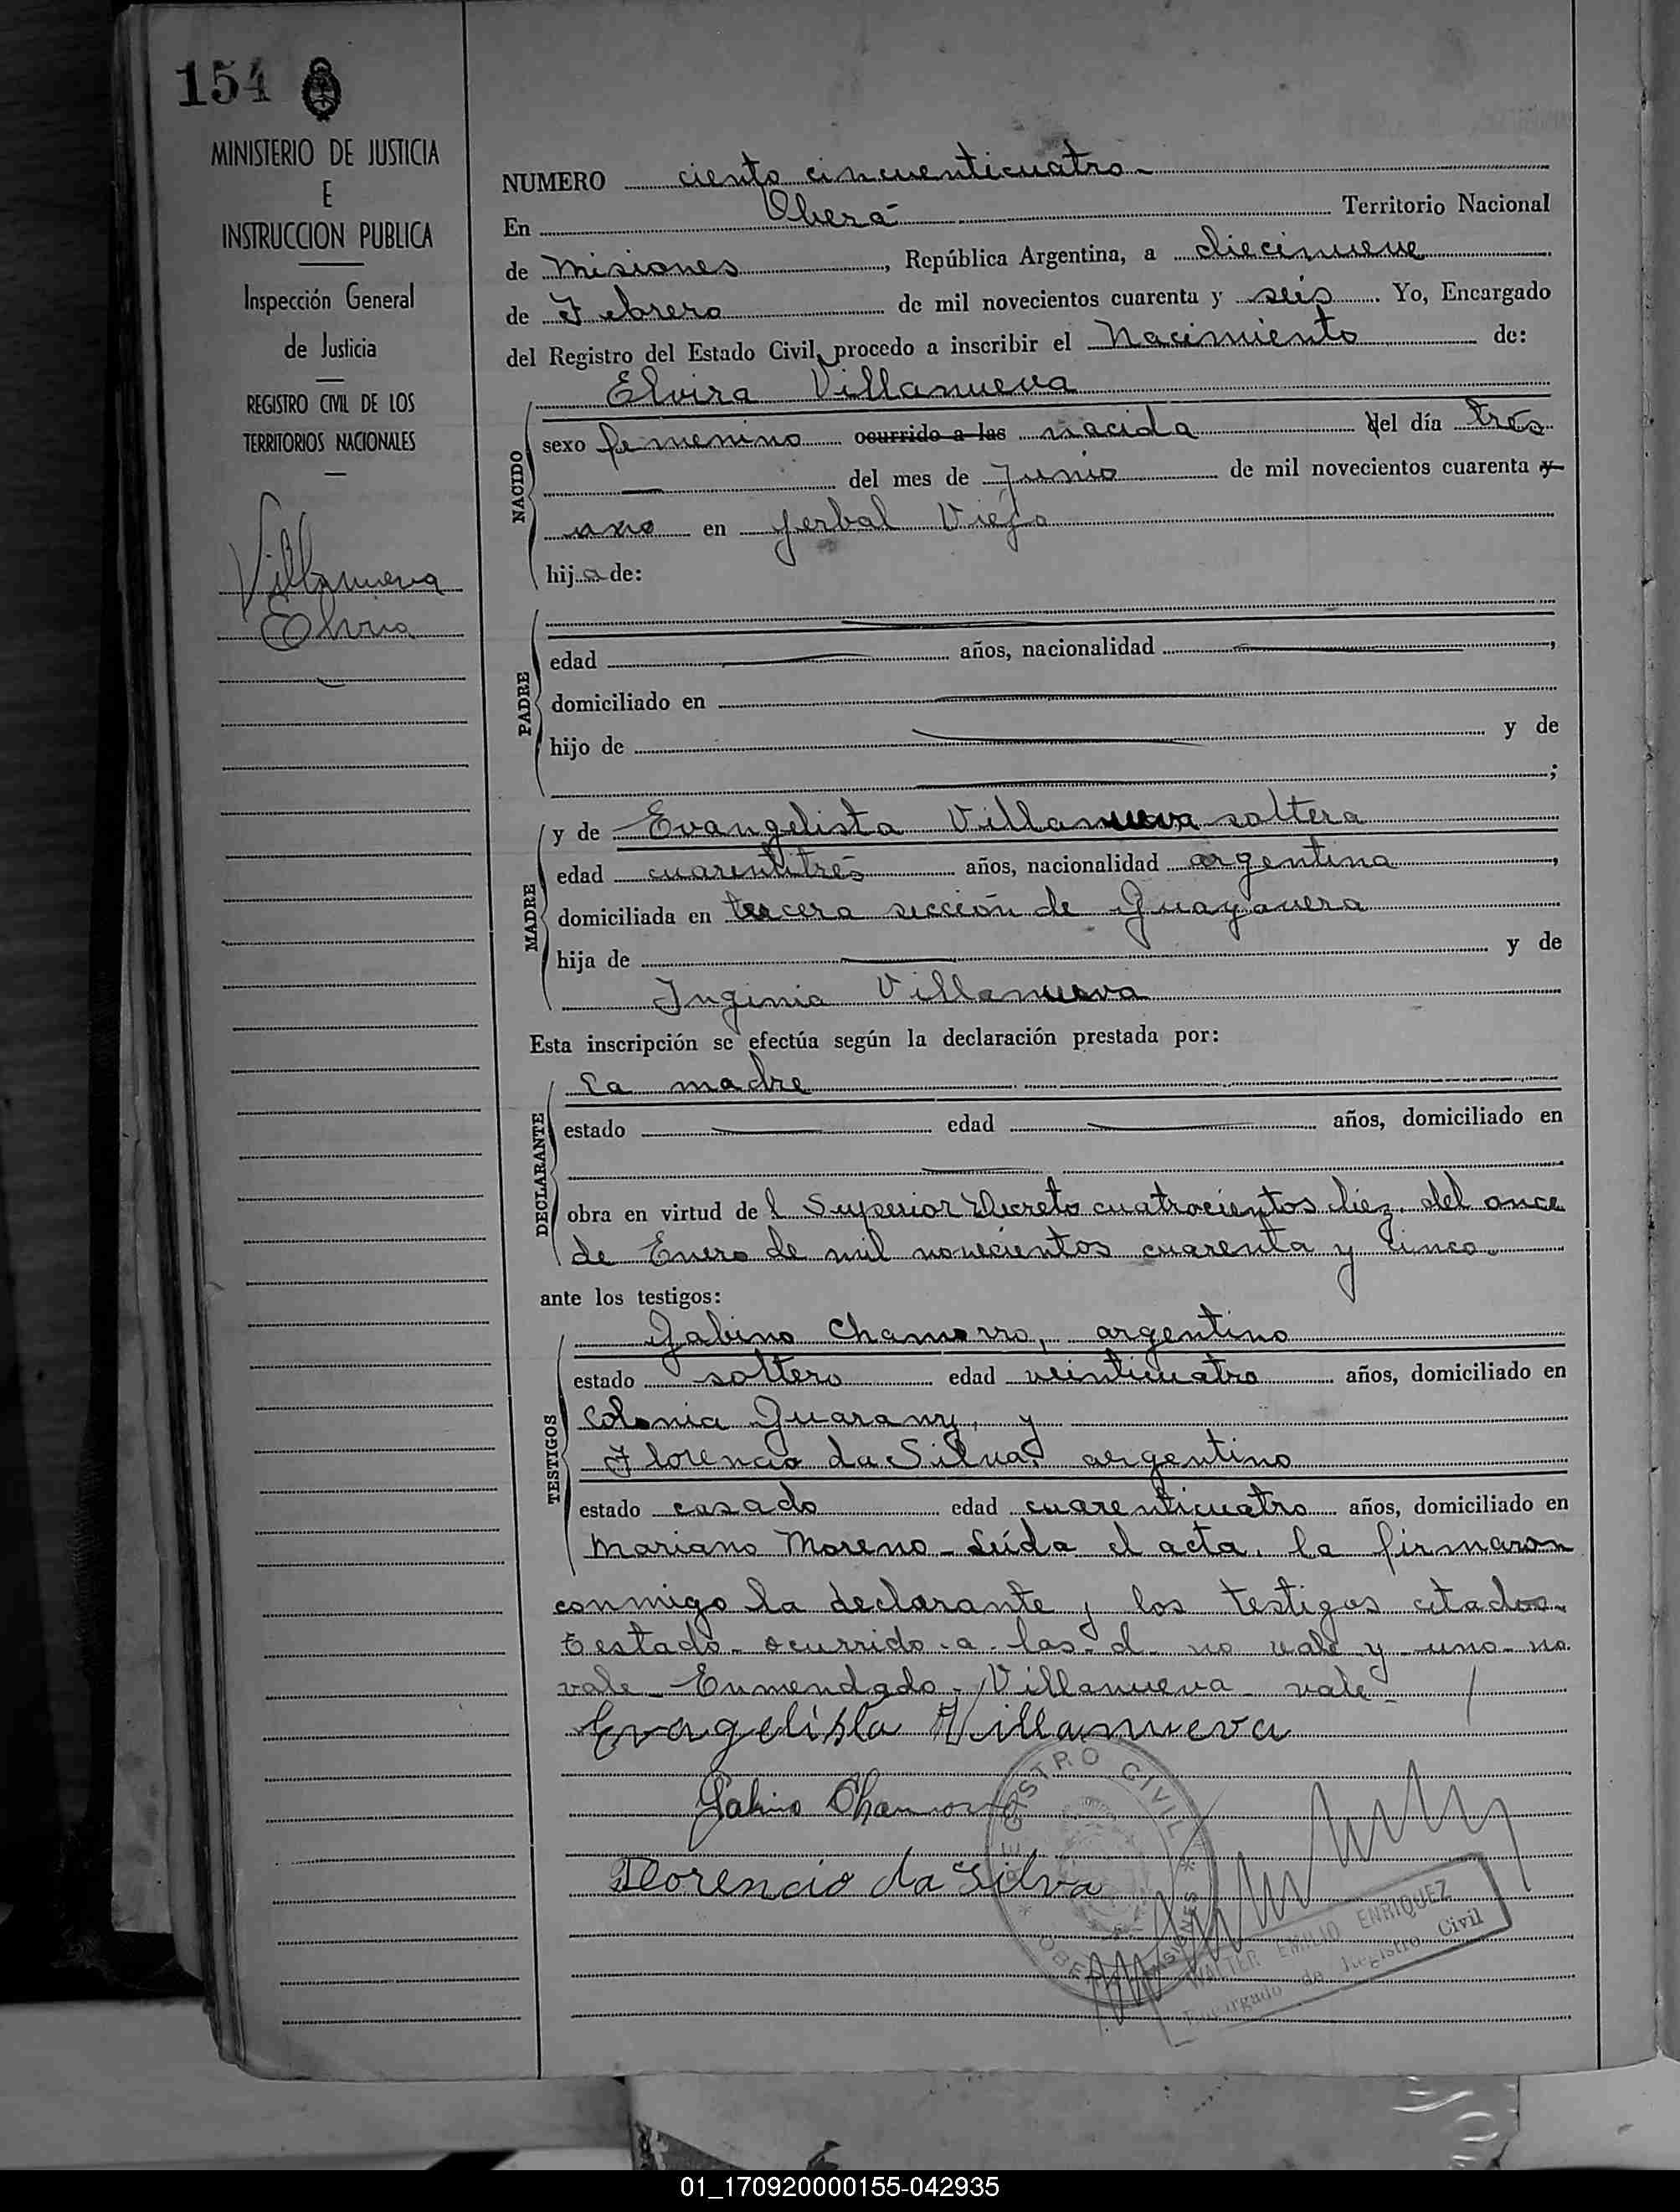 154
MINISTERIO DE JUSTICIA
E
INSTRUCCION PUBLICA
Inspección General
de Justicia
REGISTRO CIVIL DE LOS
TERRITORIOS NACIONALES
Villanueva
Elvira
NUMERO ciento cincuenticuatro-
En Oberá Territorio Nacional
de Misiones, República Argentina, a diecinueve
de Febrero de mil novecientos cuarenta y seis. Yo, Encargado
del Registro del Estado Civil, procedo a inscribir el Nacimiento de:
Elvira Villanueva
NACIDO
sexo femenino ocurrido a las nacida del día tres
del mes de Junio de mil novecientos cuarenta y
uno en Yerbal Viejo
hija de:
PADRE
edad años, nacionalidad ,
domiciliado en
hijo de y de
;
MADRE
y de Evangelista Villanueva soltera
edad cuarentitrés años, nacionalidad argentina,
domiciliada en tercera sección de Guayavera
hija de y de
Inginia Villanueva
Esta inscripción se efectúa según la declaración prestada por:
DECLARANTE
La madre
estado edad años, domiciliado en
obra en virtud del Superior Decreto cuatrocientos diez del once
de Enero de mil novecientos cuarenta y cinco.
ante los testigos:
TESTIGOS
Gabino Chamorro, argentino
estado soltero edad veinticuatro años, domiciliado en
Colonia Guarany, y
Florencio da Silva, argentino
estado casado edad cuarenticuatro años, domiciliado en
Mariano Moreno- Leída el acta, la firmaron
conmigo la declarante y los testigos citados-
Testado- ocurrido-a-las-d no vale y -uno- no
vale- Enmendado- Villanueva- vale-
Evagelista Villanueva
Gabino Chamorro
Florencio da Silva
REGISTRO CIVIL
OBERÁ MISIONES
WALTER EMILIO ENRIQUEZ
Encargado de Registro Civil
01_170920000155-042935